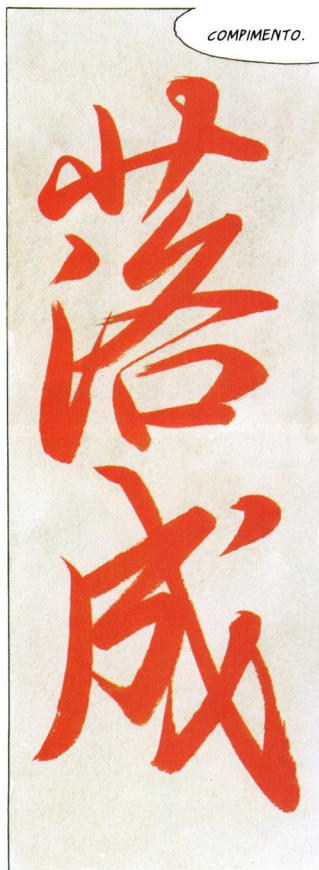 COMPIMENTO.
落成